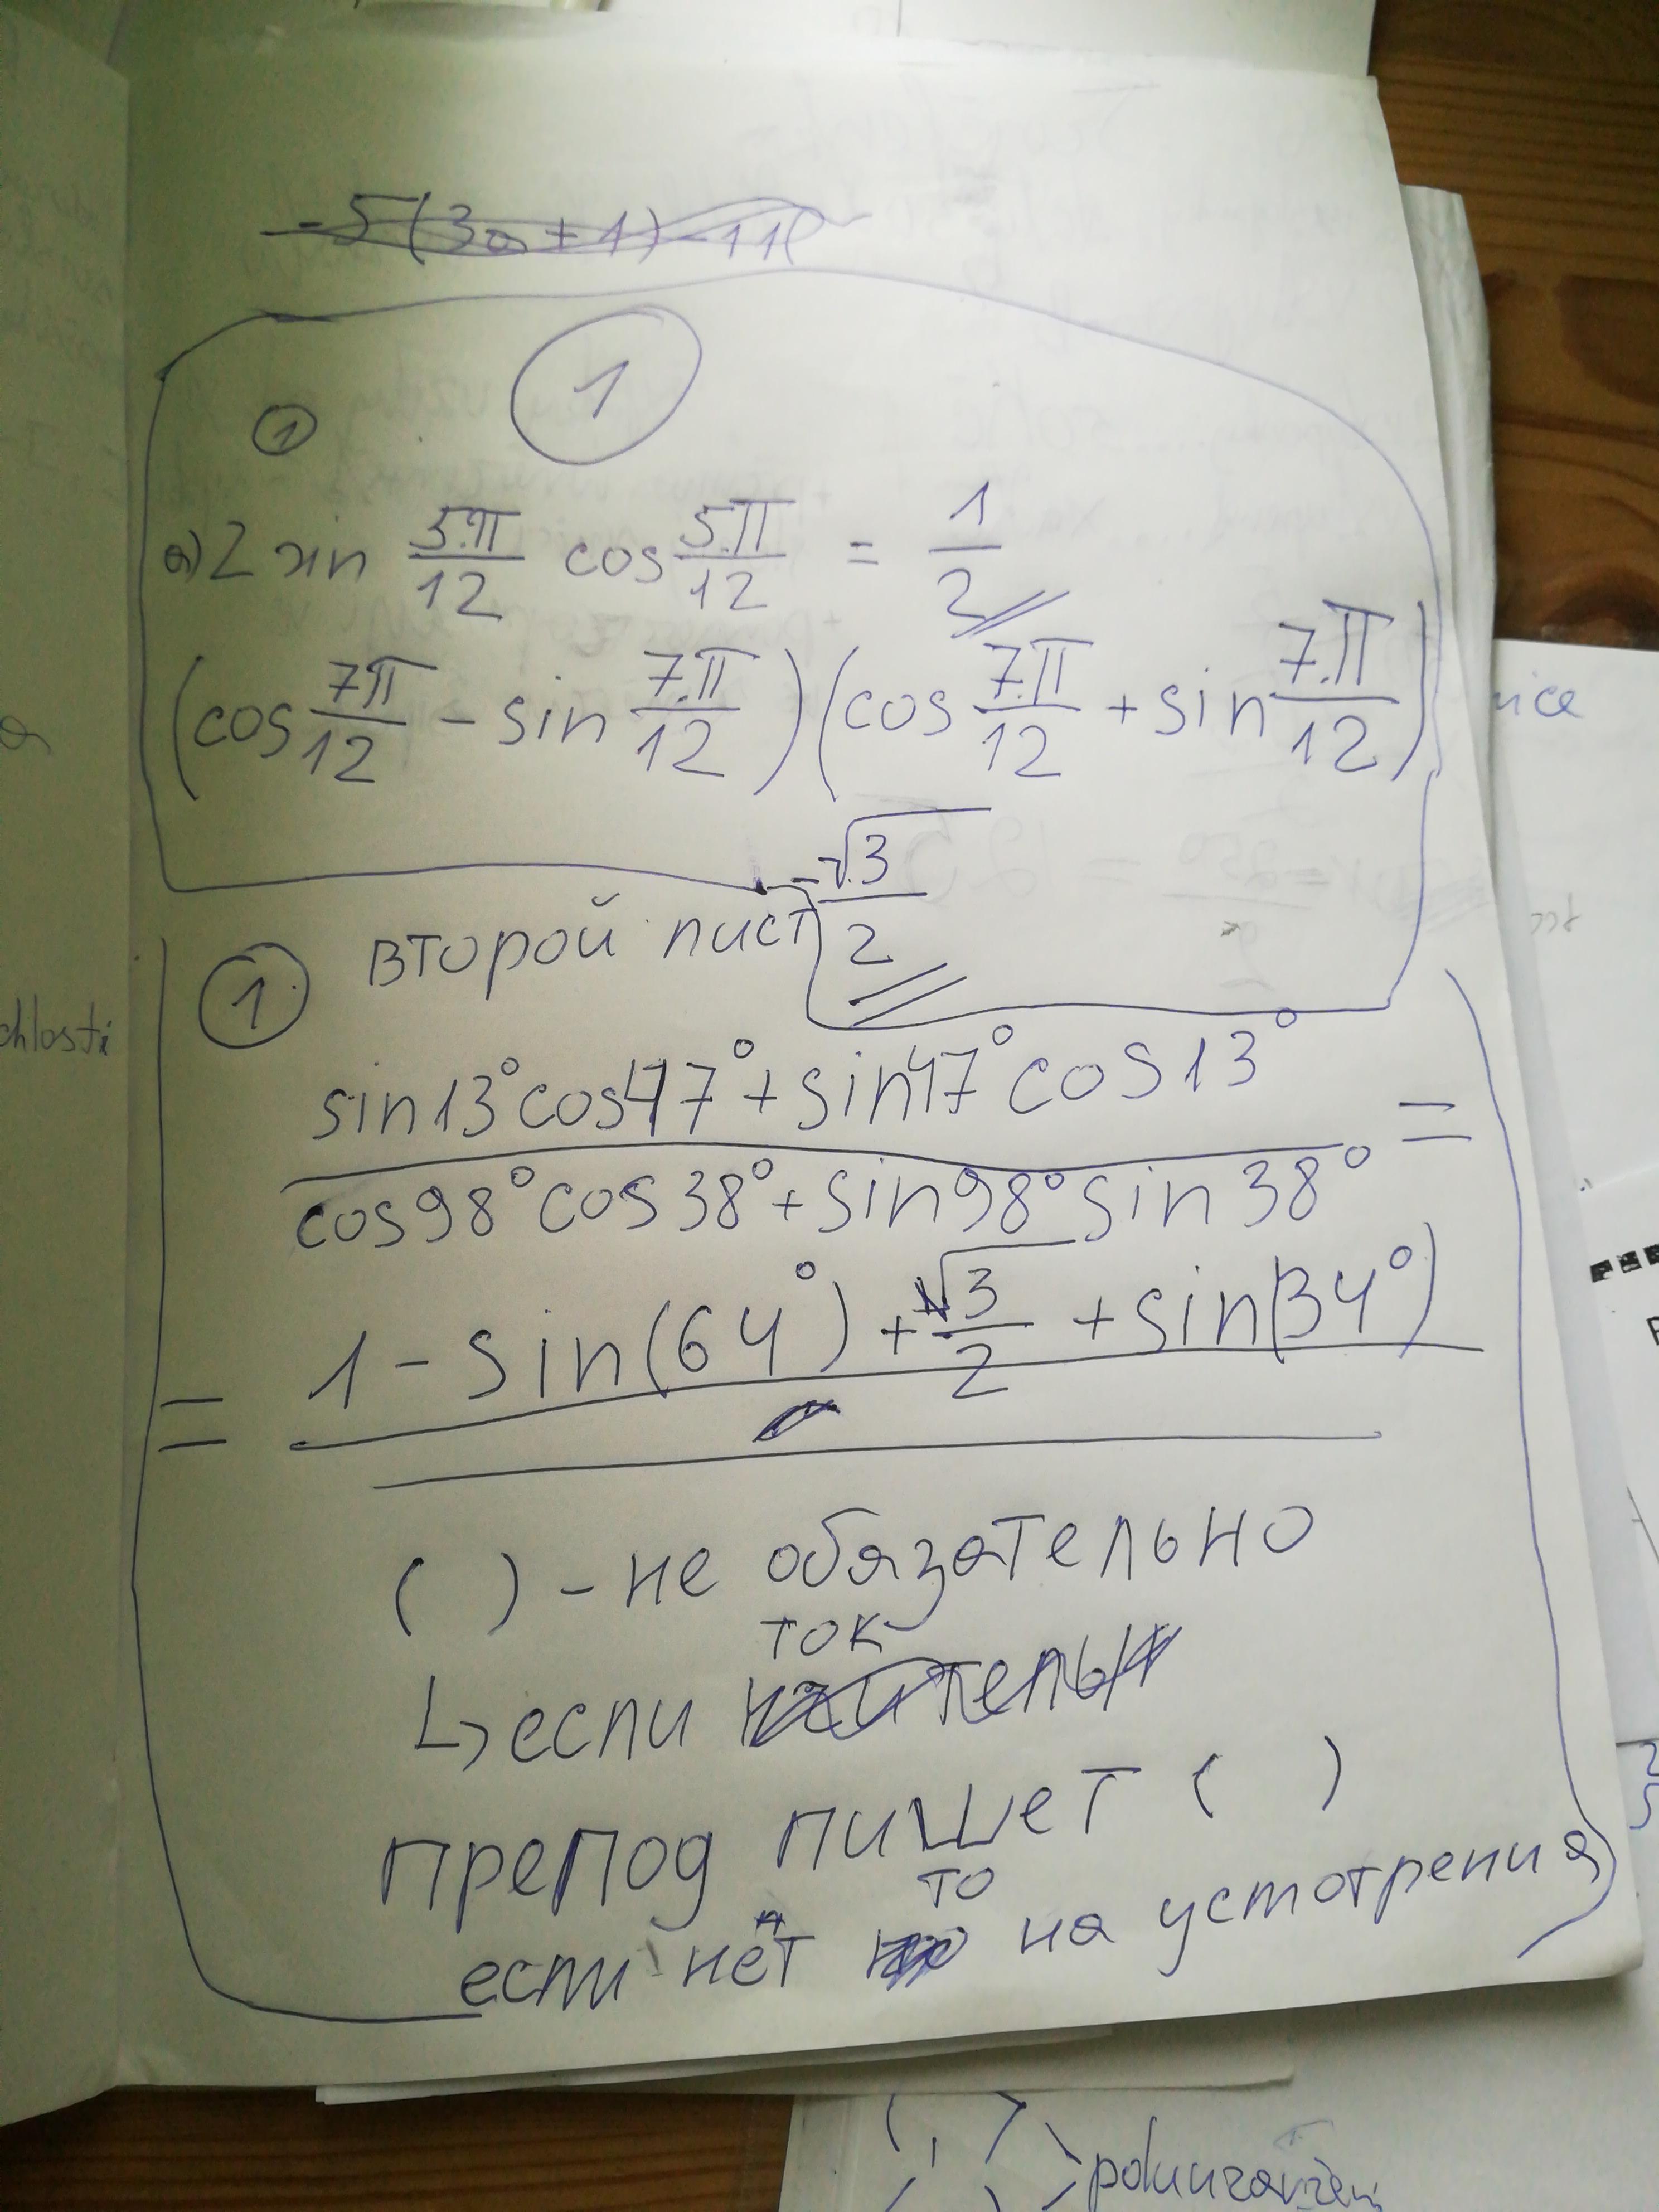 -5(3a+1)-11(
1
1
a) 2 sin 5.π/12 cos 5.π/12 = 1/2
(cos 7π/12 - sin 7.π/12)(cos 7.π/12 + sin 7.π/12)
-√3/2
второй лист
1
sin13°cos47°+sin47°cos13° =
cos98°cos38°+sin98°sin38°
= 1-sin(64°)+√3/2+sin(34°)
( ) - не обязательно
ток
↳ если
препод пишет ( )
то
если нет на усмотрения
nice
chlosti